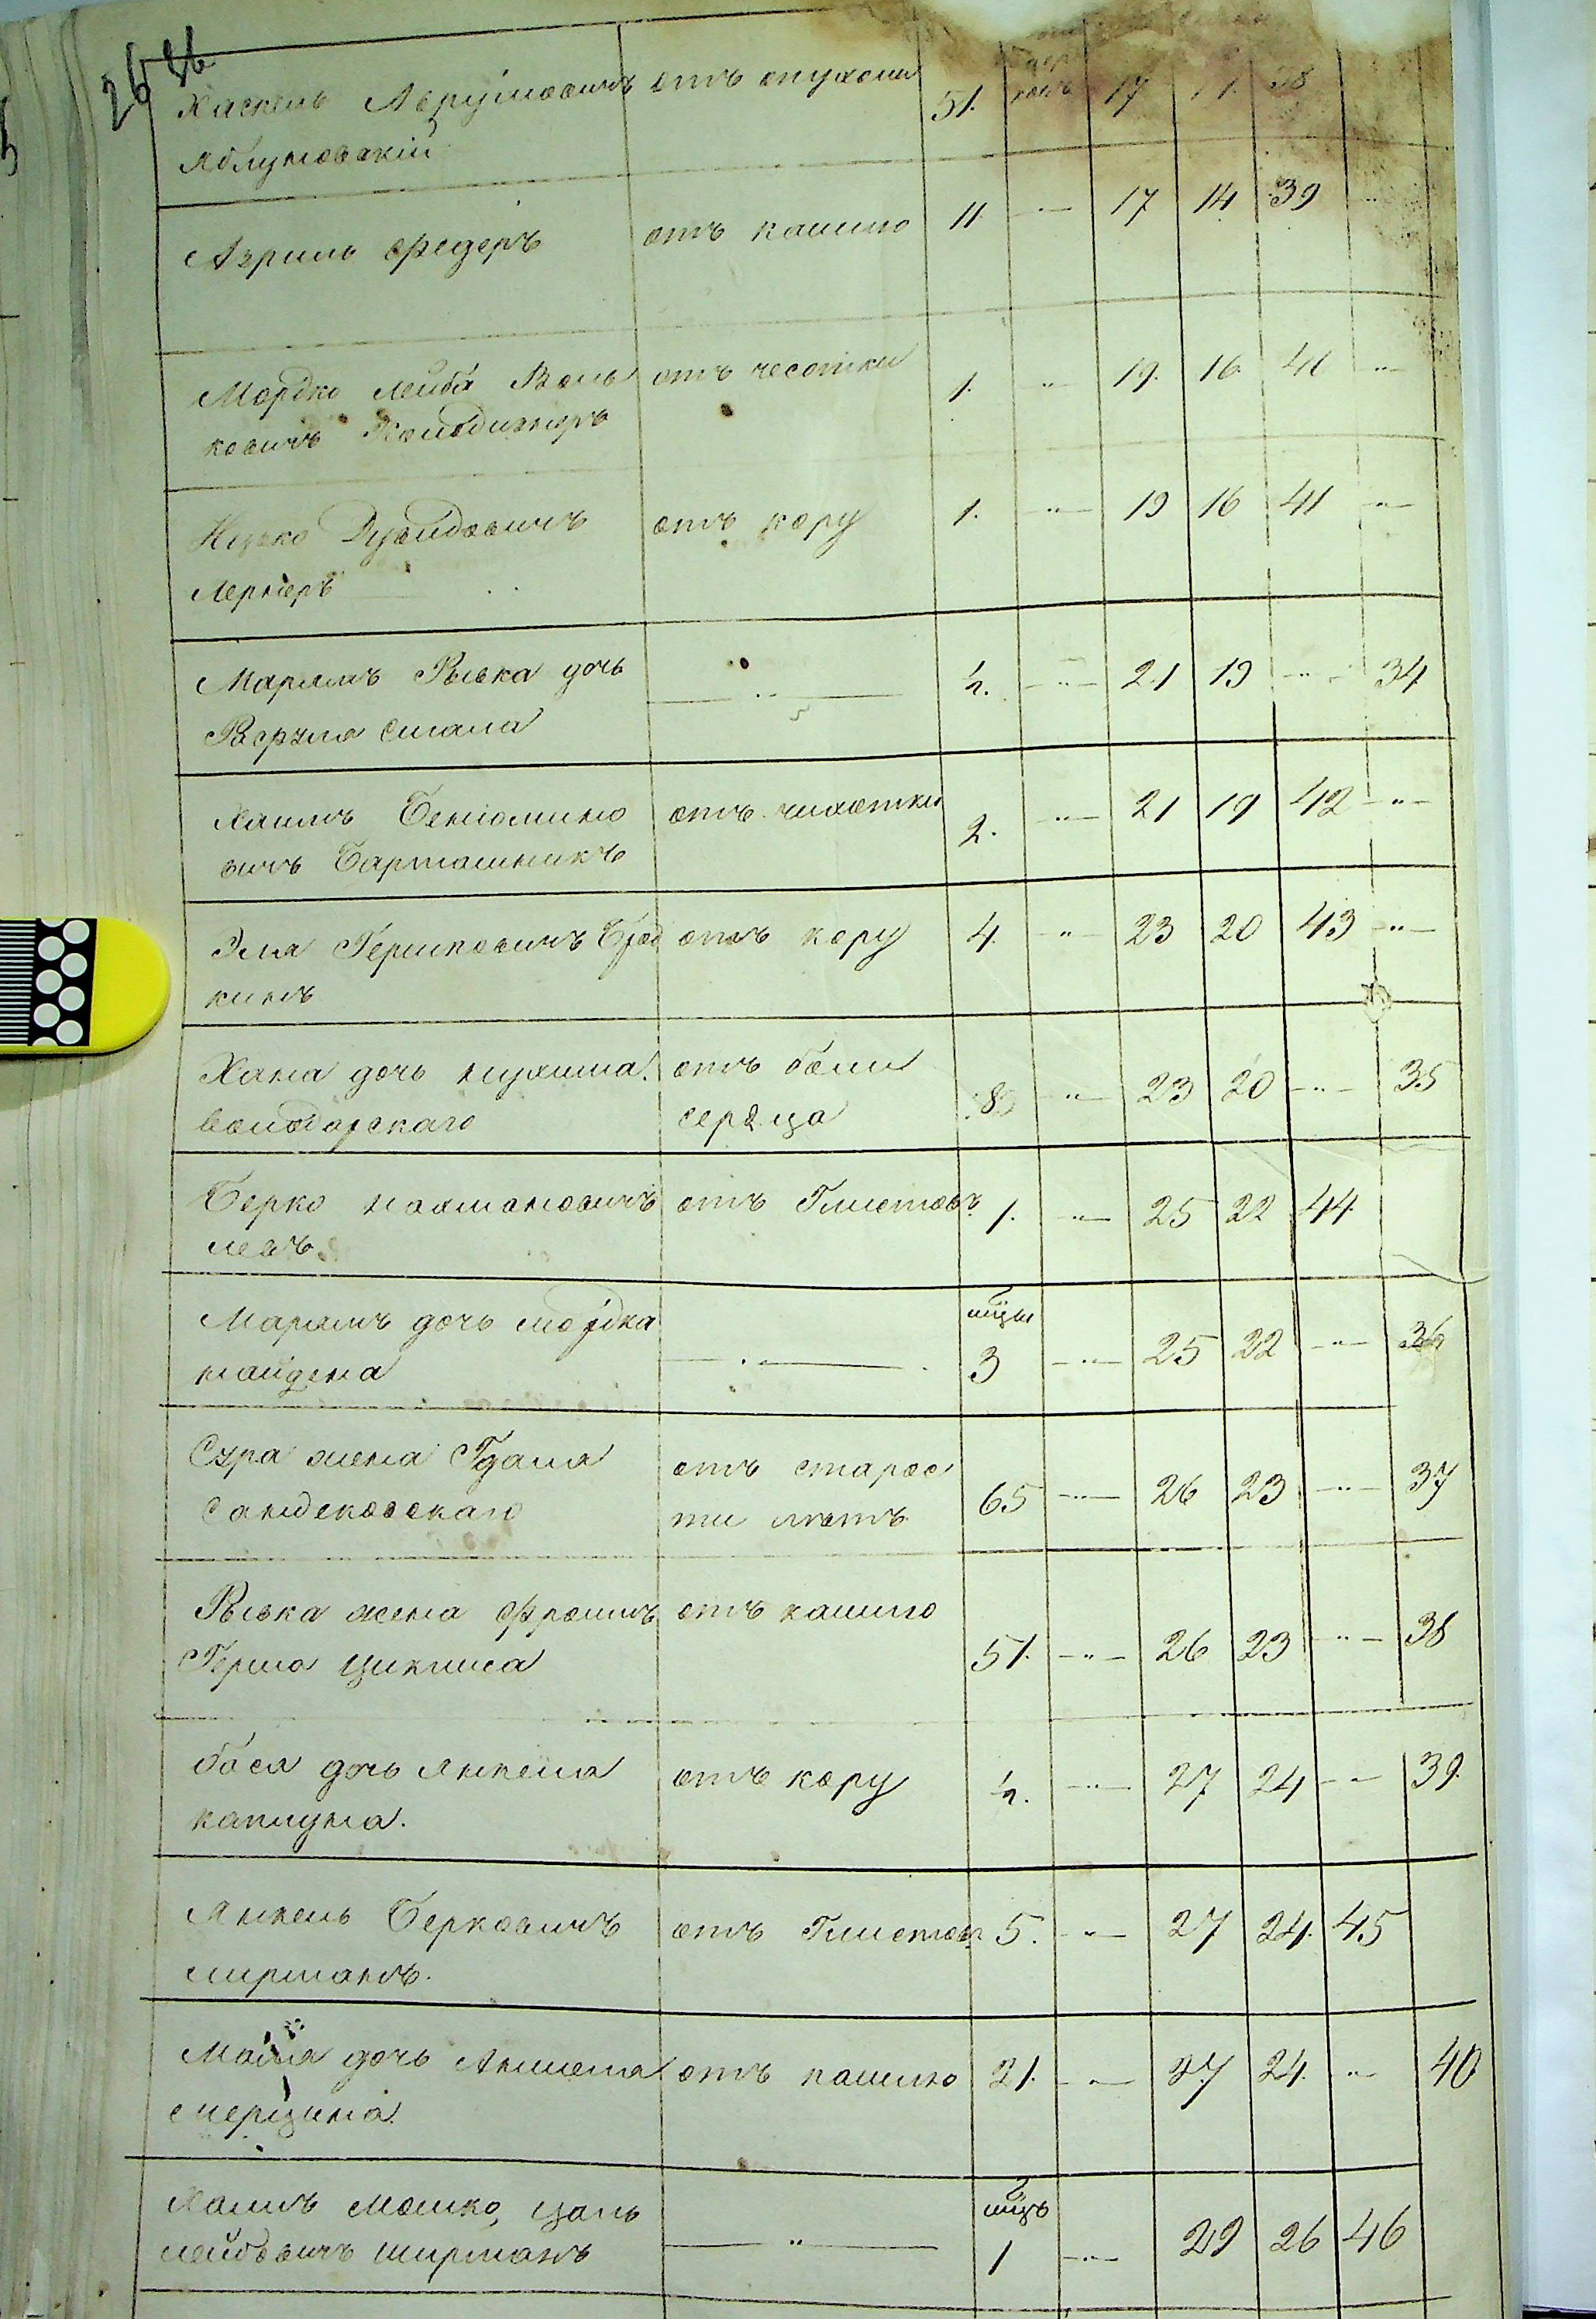 26
Хаскель Аврумовичъ отъ опухоли 51. 17 11. 38
Яблуновскій
Азриль Федеръ отъ кашлю 11. " 17 14 39 "
Мордко Лейба Воль отъ чесотки 1. " 19. 16 41 "
ковичъ
Ицко Дувидовичъ отъ кору 1. " 19 16 41 "
Лернеръ
Марьямъ Рывка дочь " ½. " 21 19 " 34
Сигала
Хаимъ Беніомино отъ чихотки 2. " 21 19 42 "
вичъ Барташникъ
Эля Гершковичъ Брод отъ кору 4. " 23 20 43 "
кинъ
Хана дочь отъ боли 8 " 23 20 " 35
Володарскаго сердца
Берко Нахмановичъ отъ Глистовъ 1. " 25 22 44
левъ
Марьямъ дочь мордка мцы
найдена " 3 " 25 22 " 36
Сура жена Гдаля отъ старос 65 " 26 23 " 37
Сандековскаго ти летъ
Рывка жена Фроимъ отъ кашлю 51. " 26 23 " 38
Герша Циклиса
бася дочь Янкеля отъ кору ½. " 27 24 " 39.
каплуна.
Янкель Берковичъ отъ Глистовъ 5. " 27 24. 45
лирманъ.
Малья дочь Аншеля отъ кашлю 21. " 27 24. " 40
Хаимъ Мошко, Цаль мцъ
лейбовичъ ширманъ " 1 " 29 26 46